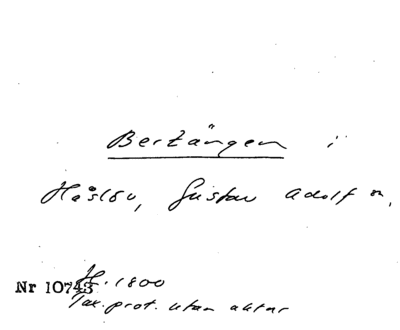 Bertängen i
Håslöv, Gustav Adolf sn,
H. 1800
Nr 10743
Tax. prot. utan aktar